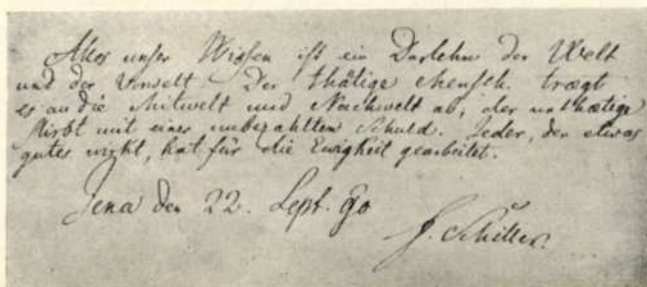 Alles unser Wissen ist ein Darlehn der Welt
und der Vorwelt. Der thätige Mensch trægt
es an die Mitwelt und Nachwelt ab, der unthætige
stirbt mit einer unbezahlten Schuld. Jeder, der etwas
gutes wirkt, hat für die Ewigkeit gearbeitet.
Jena den 22. Sept. 90
F. Schiller.